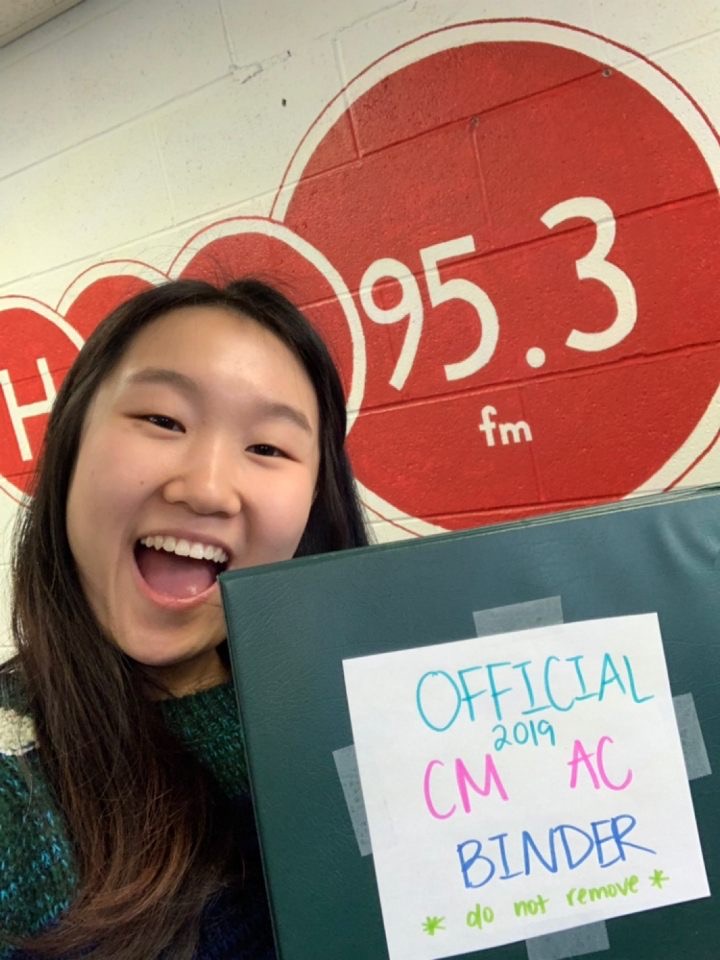 H
95.3
fm
OFFICIAL
2019
CM AC
BINDER
* do not remove *